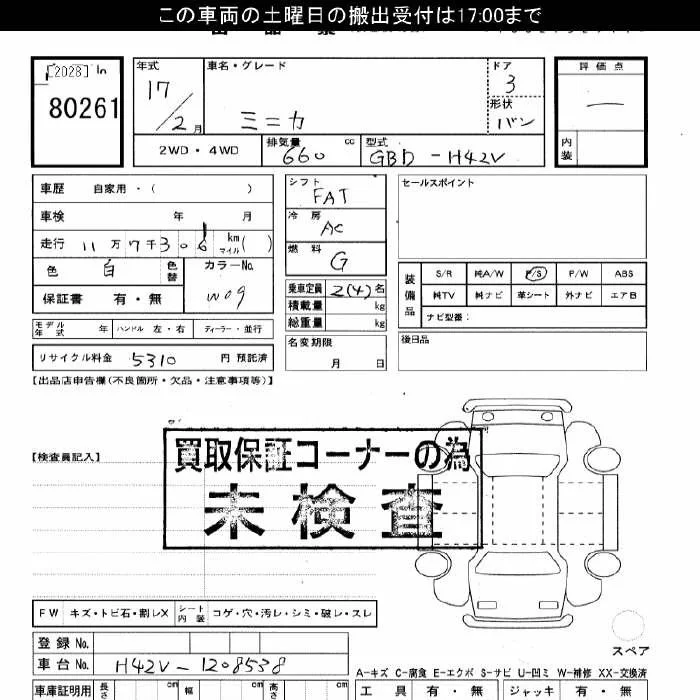 この車両の土曜日の搬出受付は17:00まで
[2028] In
80261
年式
17/2月
車名・グレード
ミニカ
ドア
3
形状
バン
評価点
―
内装
2WD・4WD
排気量 660 cc
型式 GBD-H42V
車歴 自家用・( )
車検 年 月
走行 11万7千306 km マイル( )
色 白 色替
カラーNo. W09
保証書 有・無
シフト FAT
冷房 AC
燃料 G
乗車定員 2(4)名
積載量 kg
総重量 kg
セールスポイント
装備品
S/R 純A/W P/S P/W ABS
純TV 純ナビ 革シート 外ナビ エアB
ナビ型番:
モデル年式 年 ハンドル 左・右 ディーラー・並行
名変期限 月 日
後日品
リサイクル料金 5310 円 預託済
【出品店申告欄(不良箇所・欠品・注意事項等)】
【検査員記入】
買取保証コーナーの為
未検査
FW キズ・トビ石・割レX シート内装 コゲ・穴・汚レ・シミ・破レ・スレ
登録No.
車台No. H42V-1208538
スペア
A-キズ C-腐食 E-エクボ S-サビ U-凹ミ W-補修 XX-交換済
車庫証明用 長さ cm 幅 cm 高さ cm
工具 有・無 ジャッキ 有・無